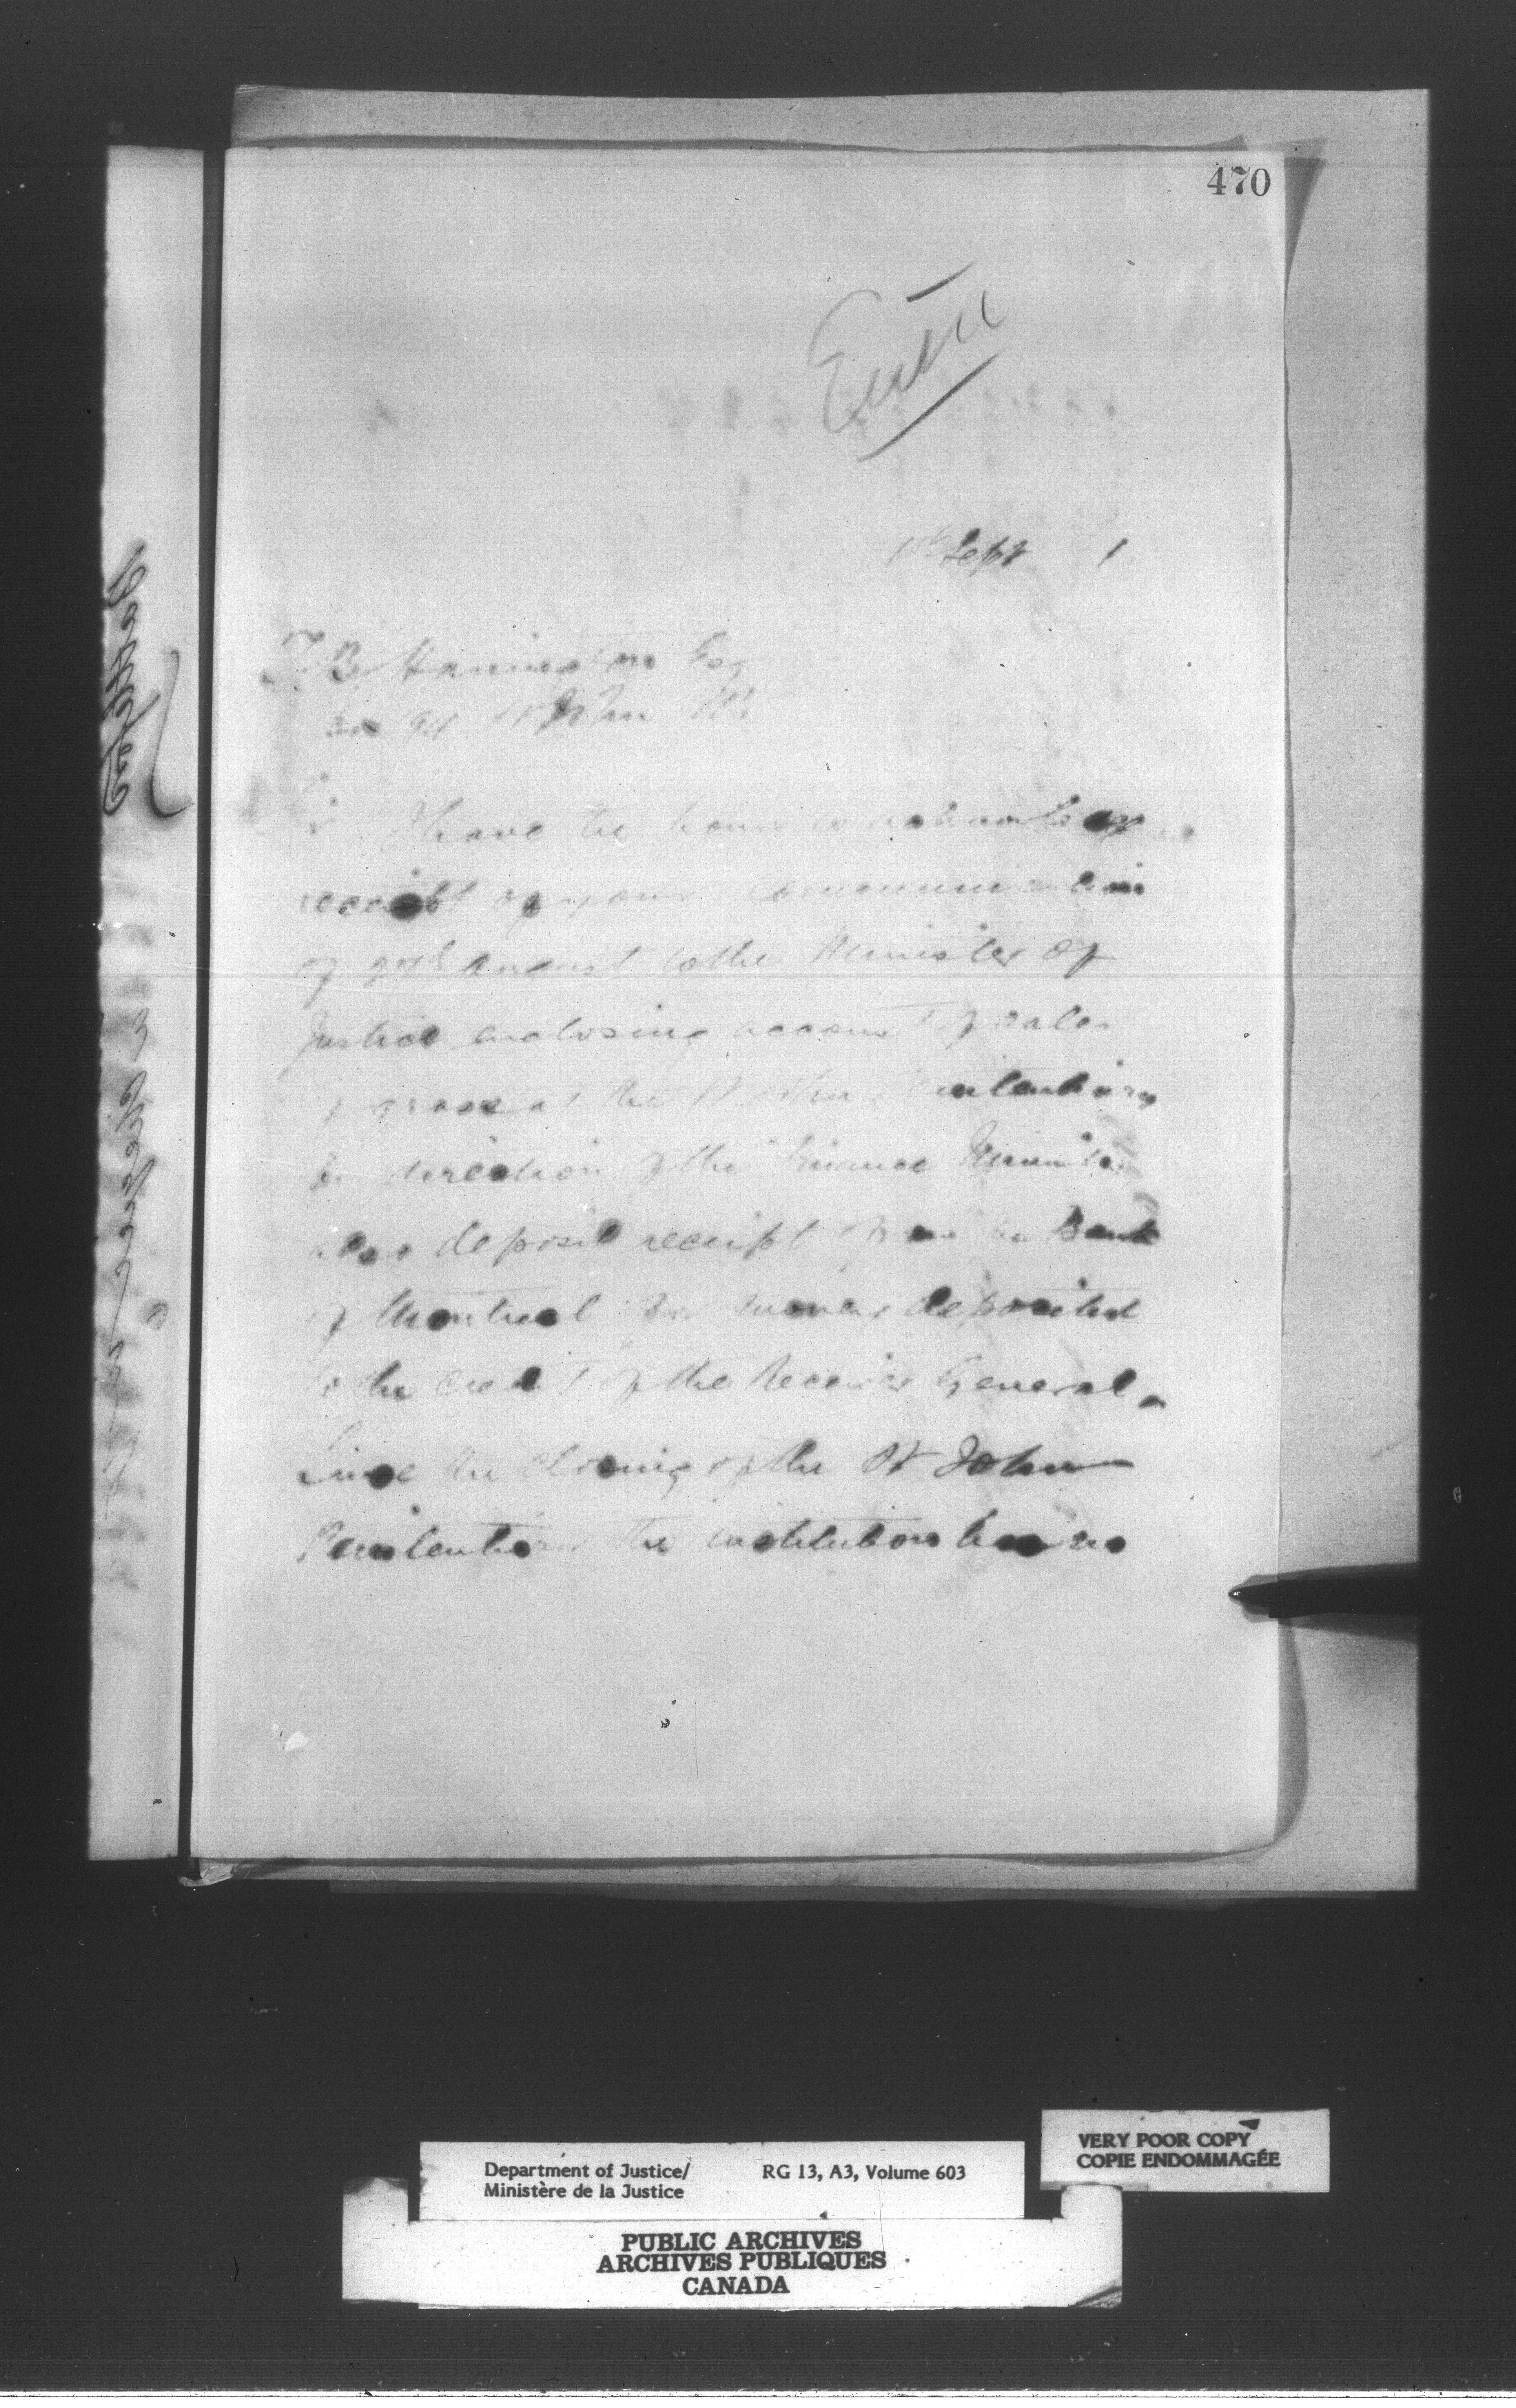 470
1st Sept 1
T B Hanington Esq
Box 94 St John NB
Sir
I have the honor to acknowledge
receipt of your communication
of 27th August to the Minister of
Justice enclosing account of sales
at the St John Penitentiary
by direction of the Finance Minister
also deposit receipt from the Bank
of Montreal for money deposited
to the credit of the Receiver General.
Since the closing of the St John
Penitentiary the institution has no
Department of Justice/ RG 13, A3, Volume 603
Ministère de la Justice
VERY POOR COPY
COPIE ENDOMMAGÉE
PUBLIC ARCHIVES
ARCHIVES PUBLIQUES
CANADA